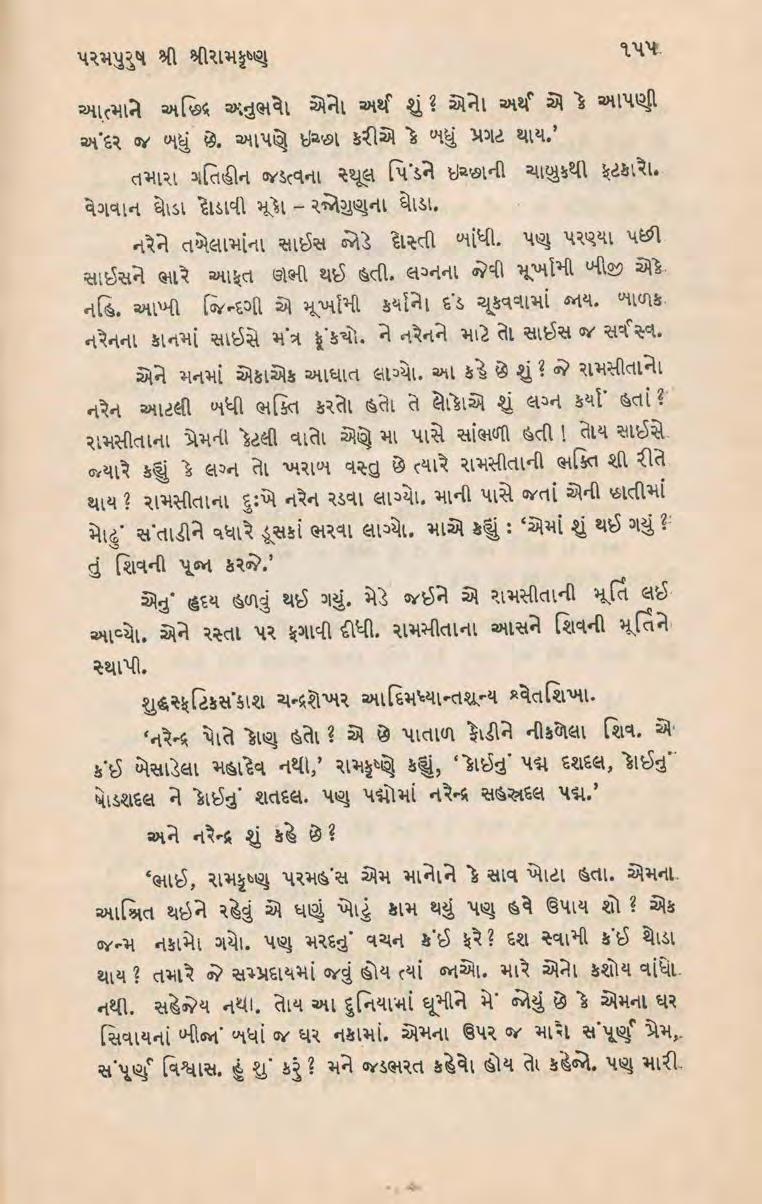 પરમપુરુષ શ્રી શ્રીરામકૃષ્ણ
૧૫૫
આત્માને અછિદ્ર અનુભવો એનો અર્થ શું? એનો અર્થ એ કે આપણી
અંદર જ બધું છે. આપણે ઇચ્છા કરીએ કે બધું પ્રગટ થાય.’
તમારા ગતિહીન જડત્વના સ્થૂલ પિંડને ઇચ્છાની ચાબુકથી ફટકારો.
વેગવાન ઘોડા દોડાવી મૂકો – રજોગુણના ઘોડા.
નરેને તબેલામાંના સાઈસ જોડે દોસ્તી બાંધી. પણ પરણ્યા પછી
સાઈસને ભારે આફત ઊભી થઈ હતી. લગ્નના જેવી મૂર્ખામી બીજી એકે
નહિ. આખી જિન્દગી એ મૂર્ખામી કર્યાનો દંડ ચૂકવવામાં જાય. બાળક
નરેનના કાનમાં સાઈસે મંત્ર ફૂંક્યો. ને નરેનને માટે તો સાઈસ જ સર્વસ્વ.
એને મનમાં એકાએક આઘાત લાગ્યો. આ કહે છે શું? જે રામસીતાનો
નરેન આટલી બધી ભક્તિ કરતો હતો તે લોકોએ શું લગ્ન કર્યાં હતાં?
રામસીતાના પ્રેમની કેટલી વાતો એણે મા પાસે સાંભળી હતી! તોય સાઈસે
જ્યારે કહ્યું કે લગ્ન તો ખરાબ વસ્તુ છે ત્યારે રામસીતાની ભક્તિ શી રીતે
થાય? રામસીતાના દુઃખે નરેન રડવા લાગ્યો. માની પાસે જતાં એની છાતીમાં
મોઢું સંતાડીને વધારે ડૂસકાં ભરવા લાગ્યો. માએ કહ્યું : ‘એમાં શું થઈ ગયું?
તું શિવની પૂજા કરજે.’
એનું હૃદય હળવું થઈ ગયું. મેડે જઈને એ રામસીતાની મૂર્તિ લઈ
આવ્યો. એને રસ્તા પર ફગાવી દીધી. રામસીતાના આસને શિવની મૂર્તિને
સ્થાપી.
શુદ્ધસ્ફટિકસંકાશ ચન્દ્રશેખર આદિમધ્યાન્તશૂન્ય શ્વેતશિખા.
‘નરેન્દ્ર પોતે કોણ હતો? એ છે પાતાળ ફોડીને નીકળેલા શિવ. એ
કંઈ બેસાડેલા મહાદેવ નથી,’ રામકૃષ્ણે કહ્યું, ‘કોઈનું પદ્મ દશદલ, કોઈનું
ષોડશદલ ને કોઈનું શતદલ. પણ પદ્મોમાં નરેન્દ્ર સહસ્રદલ પદ્મ.’
અને નરેન્દ્ર શું કહે છે?
‘ભાઈ, રામકૃષ્ણ પરમહંસ એમ માનોને કે સાવ ખોટા હતા. એમના
આશ્રિત થઇને રહેવું એ ઘણું ખોટું કામ થયું પણ હવે ઉપાય શો? એક
જન્મ નકામો ગયો. પણ મરદનું વચન કંઈ ફરે? દશ સ્વામી કંઈ થોડા
થાય? તમારે જે સમ્પ્રદાયમાં જવું હોય ત્યાં જાઓ. મારે એનો કશોય વાંધો
નથી. સહેજેય નથી. તોય આ દુનિયામાં ઘૂમીને મેં જોયું છે કે એમના ઘર
સિવાયનાં બીજાં બધાં જ ઘર નકામાં. એમના ઉપર જ મારો સંપૂર્ણ પ્રેમ,
સંપૂર્ણ વિશ્વાસ. હું શું કરું? મને જડભરત કહેવો હોય તો કહેજો. પણ મારી